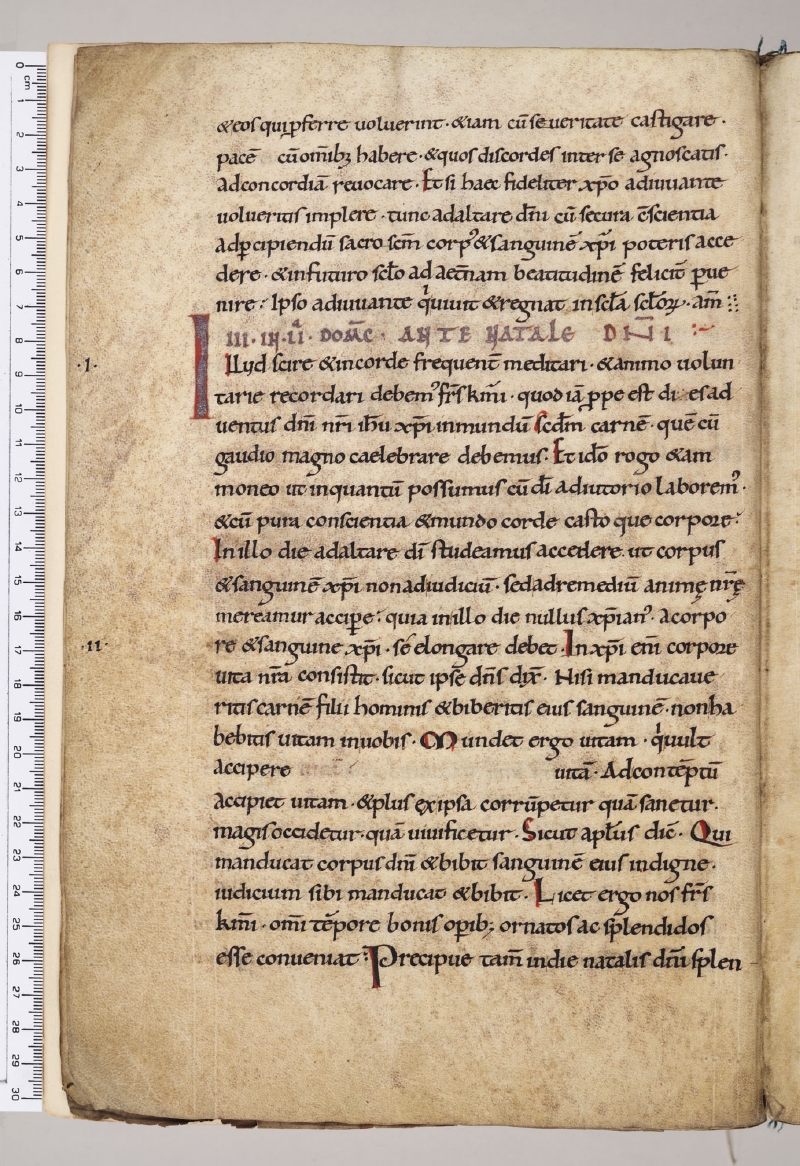 &eos qui p̲ferre voluerint · &iam cū se veritate castigare ·
pacē cū om̄ib; habere · &quos discordes inter se agnoscatis ·
ad concordiā revocare · Et si haec fideliter xp̄o adiuuante
uolueritis implere · tunc ad altare dn̄i cū secura c̄scientia
ad p̲cipiendū sacro scm̄ corp᾽ & sanguinē xp̄i poteris acce
dere · & in futuro sclō ad aet̄nam beatitudinē felicit̄ p̲ue
nire : Ipso adiuuante qͥ uiuit & regnat in sclā sclōꝝ · am̄
III · III · II · DOM̄C · ANTE NATALE DN̄I
·I· Illud scire & in corde frequent̄ meditari · & animo uolun
tarie recordari debem᾽ fr̄s km̄i · quod iā p̲pe est di es ad
uentus dn̄i nr̄i ih̄u xp̄i in mundū scd̄m carnē · quē cū
gaudio magno caelebrare debemus · Et idō rogo & am
moneo ut in quantū possumus cū dī adiutorio laborem᾽ ·
& cū pura conscientia & mundo corde casto que corpore :
In illo die ad altare dī studeamus accedere · ut corpus
& sanguinē xp̄i non ad iudiciū · sed ad remediū animę nr̄ę
mereamur accip̲e : quia in illo die nullus xp̄ian᾽ · a corpo
·II· re & sanguine xp̄i · sé elongare debet · In xp̄i em̄ corpore
uita nr̄a consistit · sicut ipse dn̄s dix̄ · Nisi manducaue
ritis carnē filii hominis & biberitis eius sanguinē · non ha
bebitis uitam in uobis · Mundet ergo uitam · qͥ uult
accipere uitā · Ad contēptū
accipiet uitam · & plus ex ipsa corrūpetur quā sanetur ·
magis occidetur · quā uiuificetur · Sicut apl̄us dic̄ · Qui
manducat corpus dn̄i & bibit sanguinē eius indigne ·
iudicium sibi manducat & bibit · Licet ergo nos fr̄s
km̄i · om̄i tēpore bonis op̲ib; ornatos ac splendidos
esse conueniat : Precipue tam̄ in die natalis dn̄i splen